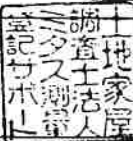 土地家屋
調査士法人
ミタス測量
登記サポート